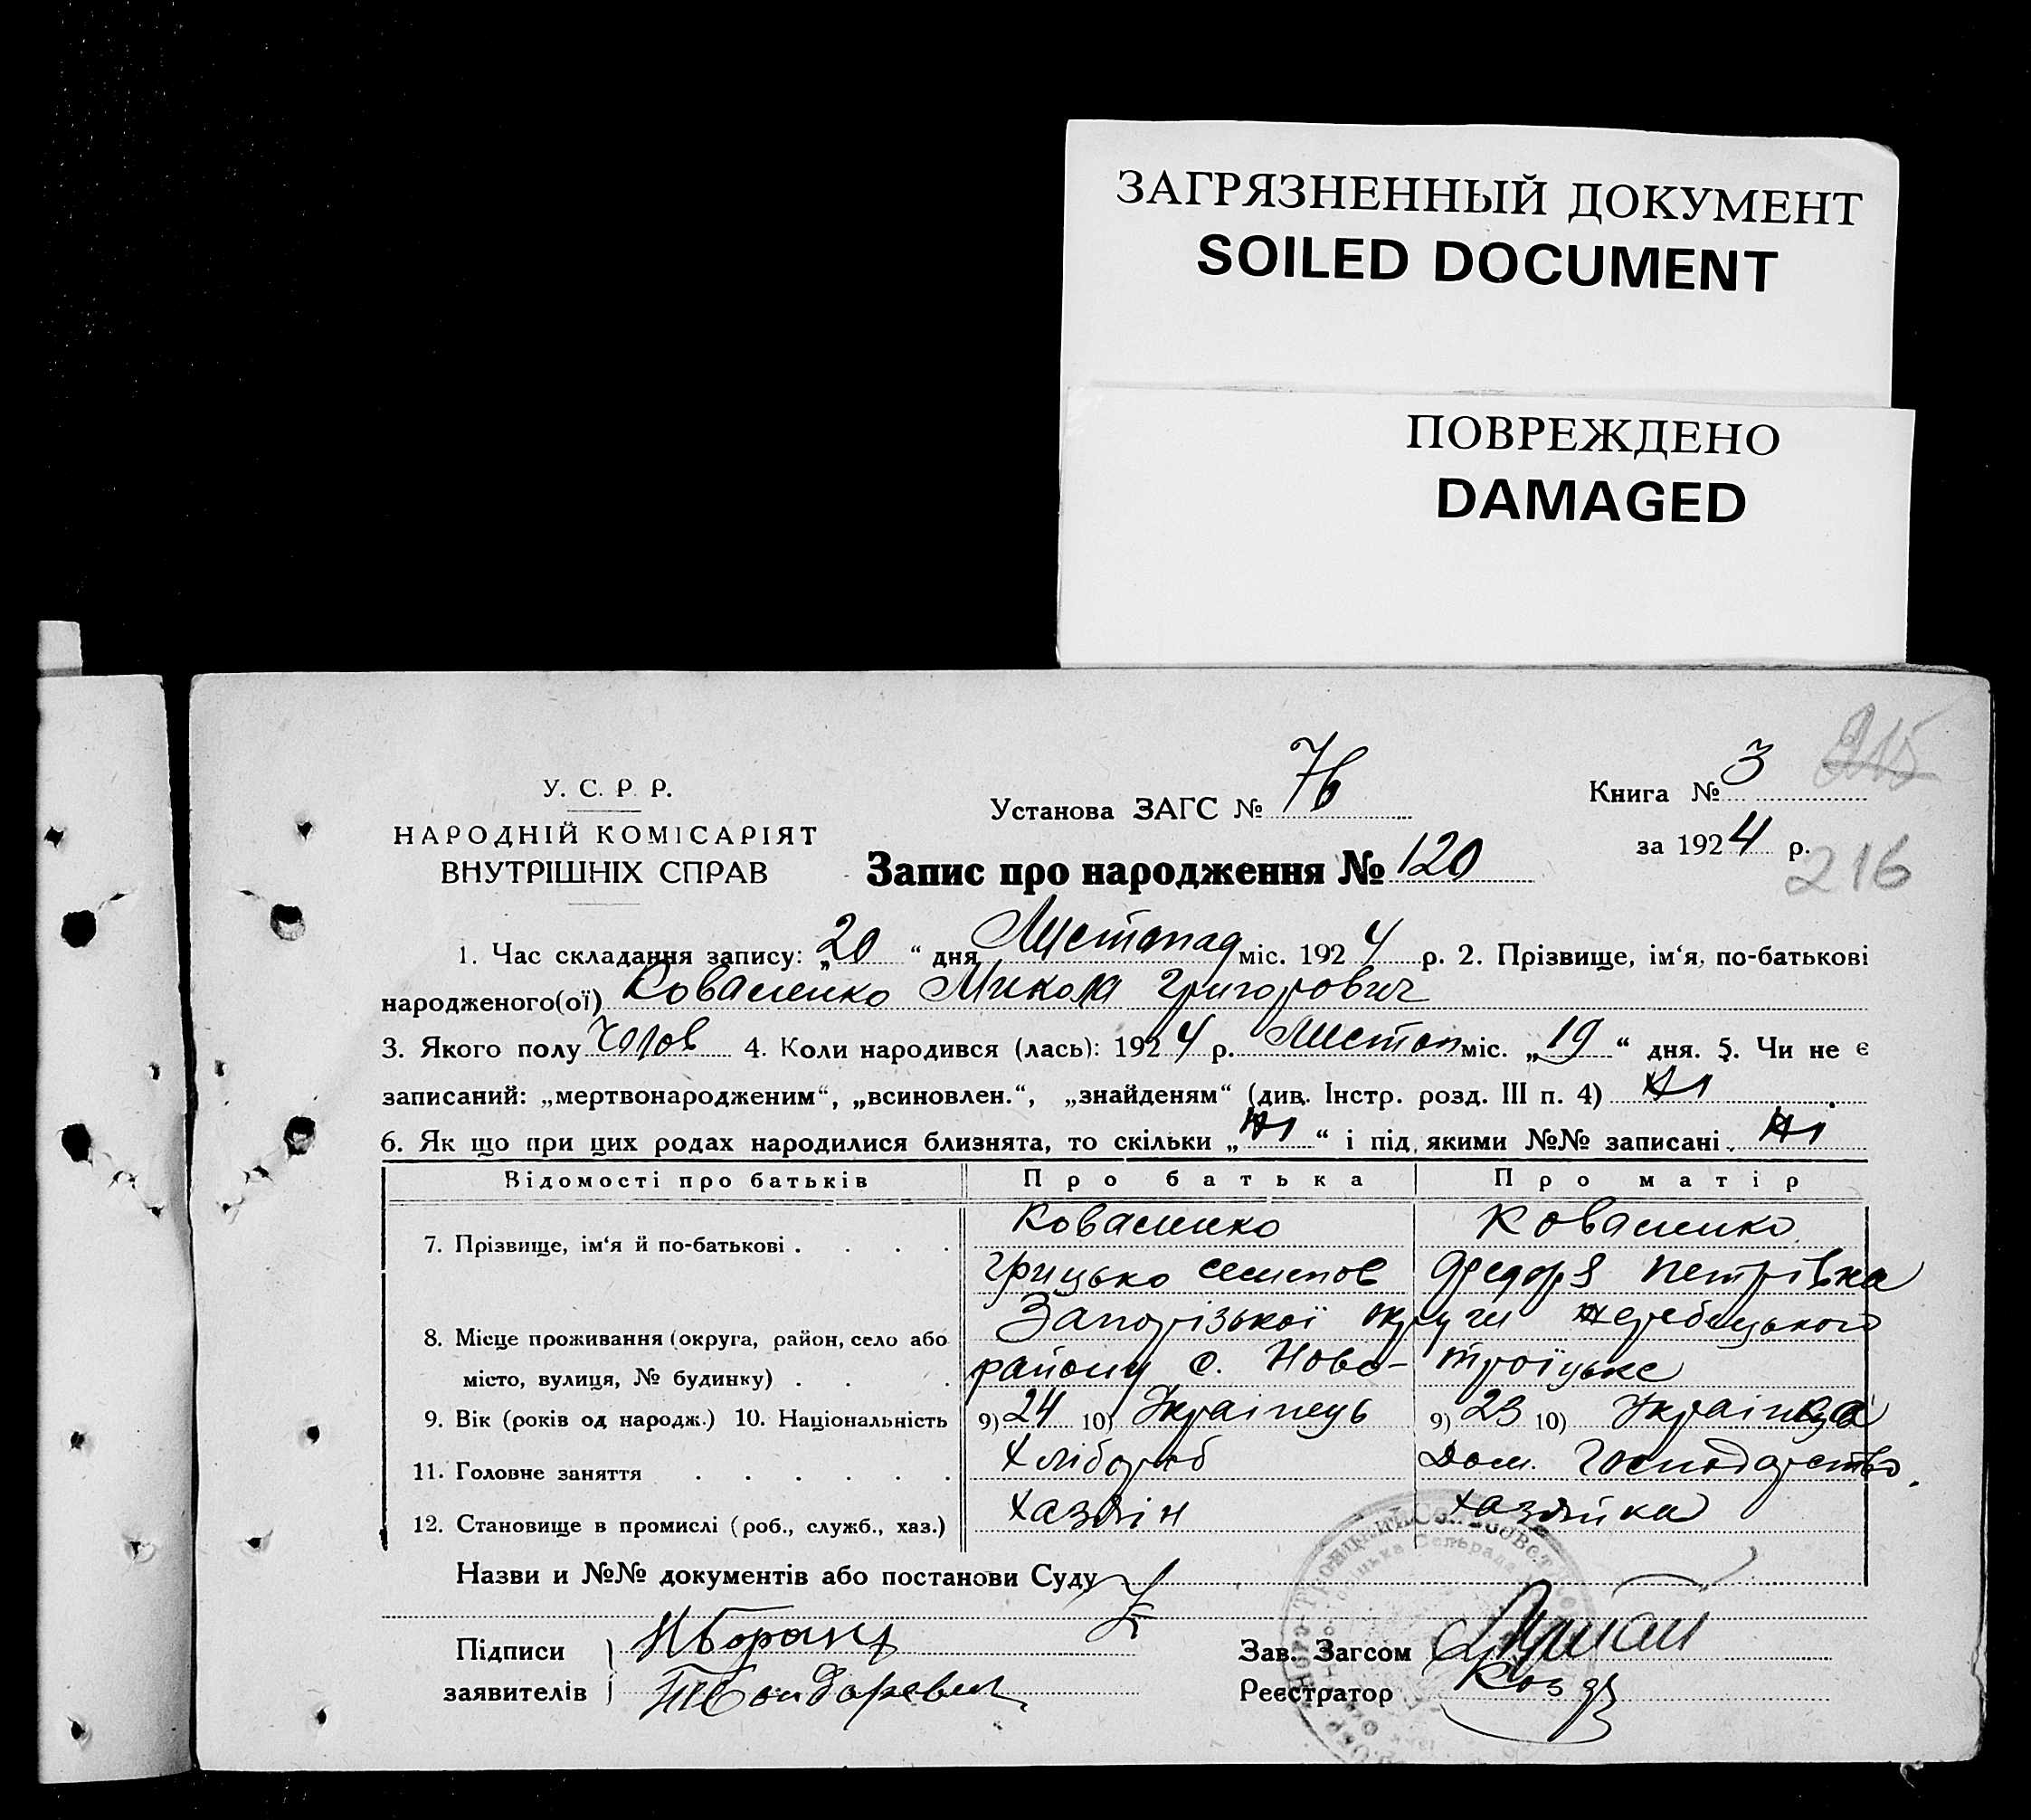 ЗАГРЯЗНЕННЫЙ ДОКУМЕНТ
SOILED DOCUMENT
ПОВРЕЖДЕНО
DAMAGED
215
216
У. С. Р. Р.
НАРОДНІЙ КОМІСАРІЯТ
ВНУТРІШНІХ СПРАВ
Установа ЗАГС № 76
Книга № 3
за 1924 р.
Запис про народження № 120
1. Час складання запису: „20“ дня Листопад міс. 1924 р. 2. Прізвище, ім‘я, по-батькові
народженого(ої) Коваленко Микола Григорович
3. Якого полу Чолов 4. Коли народився (лась): 1924 р. Листоп міс. „19“ дня. 5. Чи не є
записаний: „мертвонародженим“, „всиновлен.“, „знайденям“ (див. Інстр. розд. III п. 4) Ні
6. Як що при цих родах народилися близнята, то скільки „Ні“ і під якими №№ записані Ні
Відомості про батьків Про батька Про матір
7. Прізвище, ім‘я й по-батькові Коваленко Коваленко
Грицько Семенов Федоря Петрівна
8. Місце проживання (округа, район, село або Запорізької округи Жеребецького
місто, вулиця, № будинку) району с. Ново-Троїцьке
9. Вік (років од народж.) 10. Національність 9) 24 10) Українець 9) 23 10) Українка
11. Головне заняття Хлібороб Дом. Господарство.
12. Становище в промислі (роб., служб., хаз.) Хазяїн Хазяйка
Назви и №№ документів або постанови Суду
Підписи
заявителів
Зав. Загсом
Реєстратор